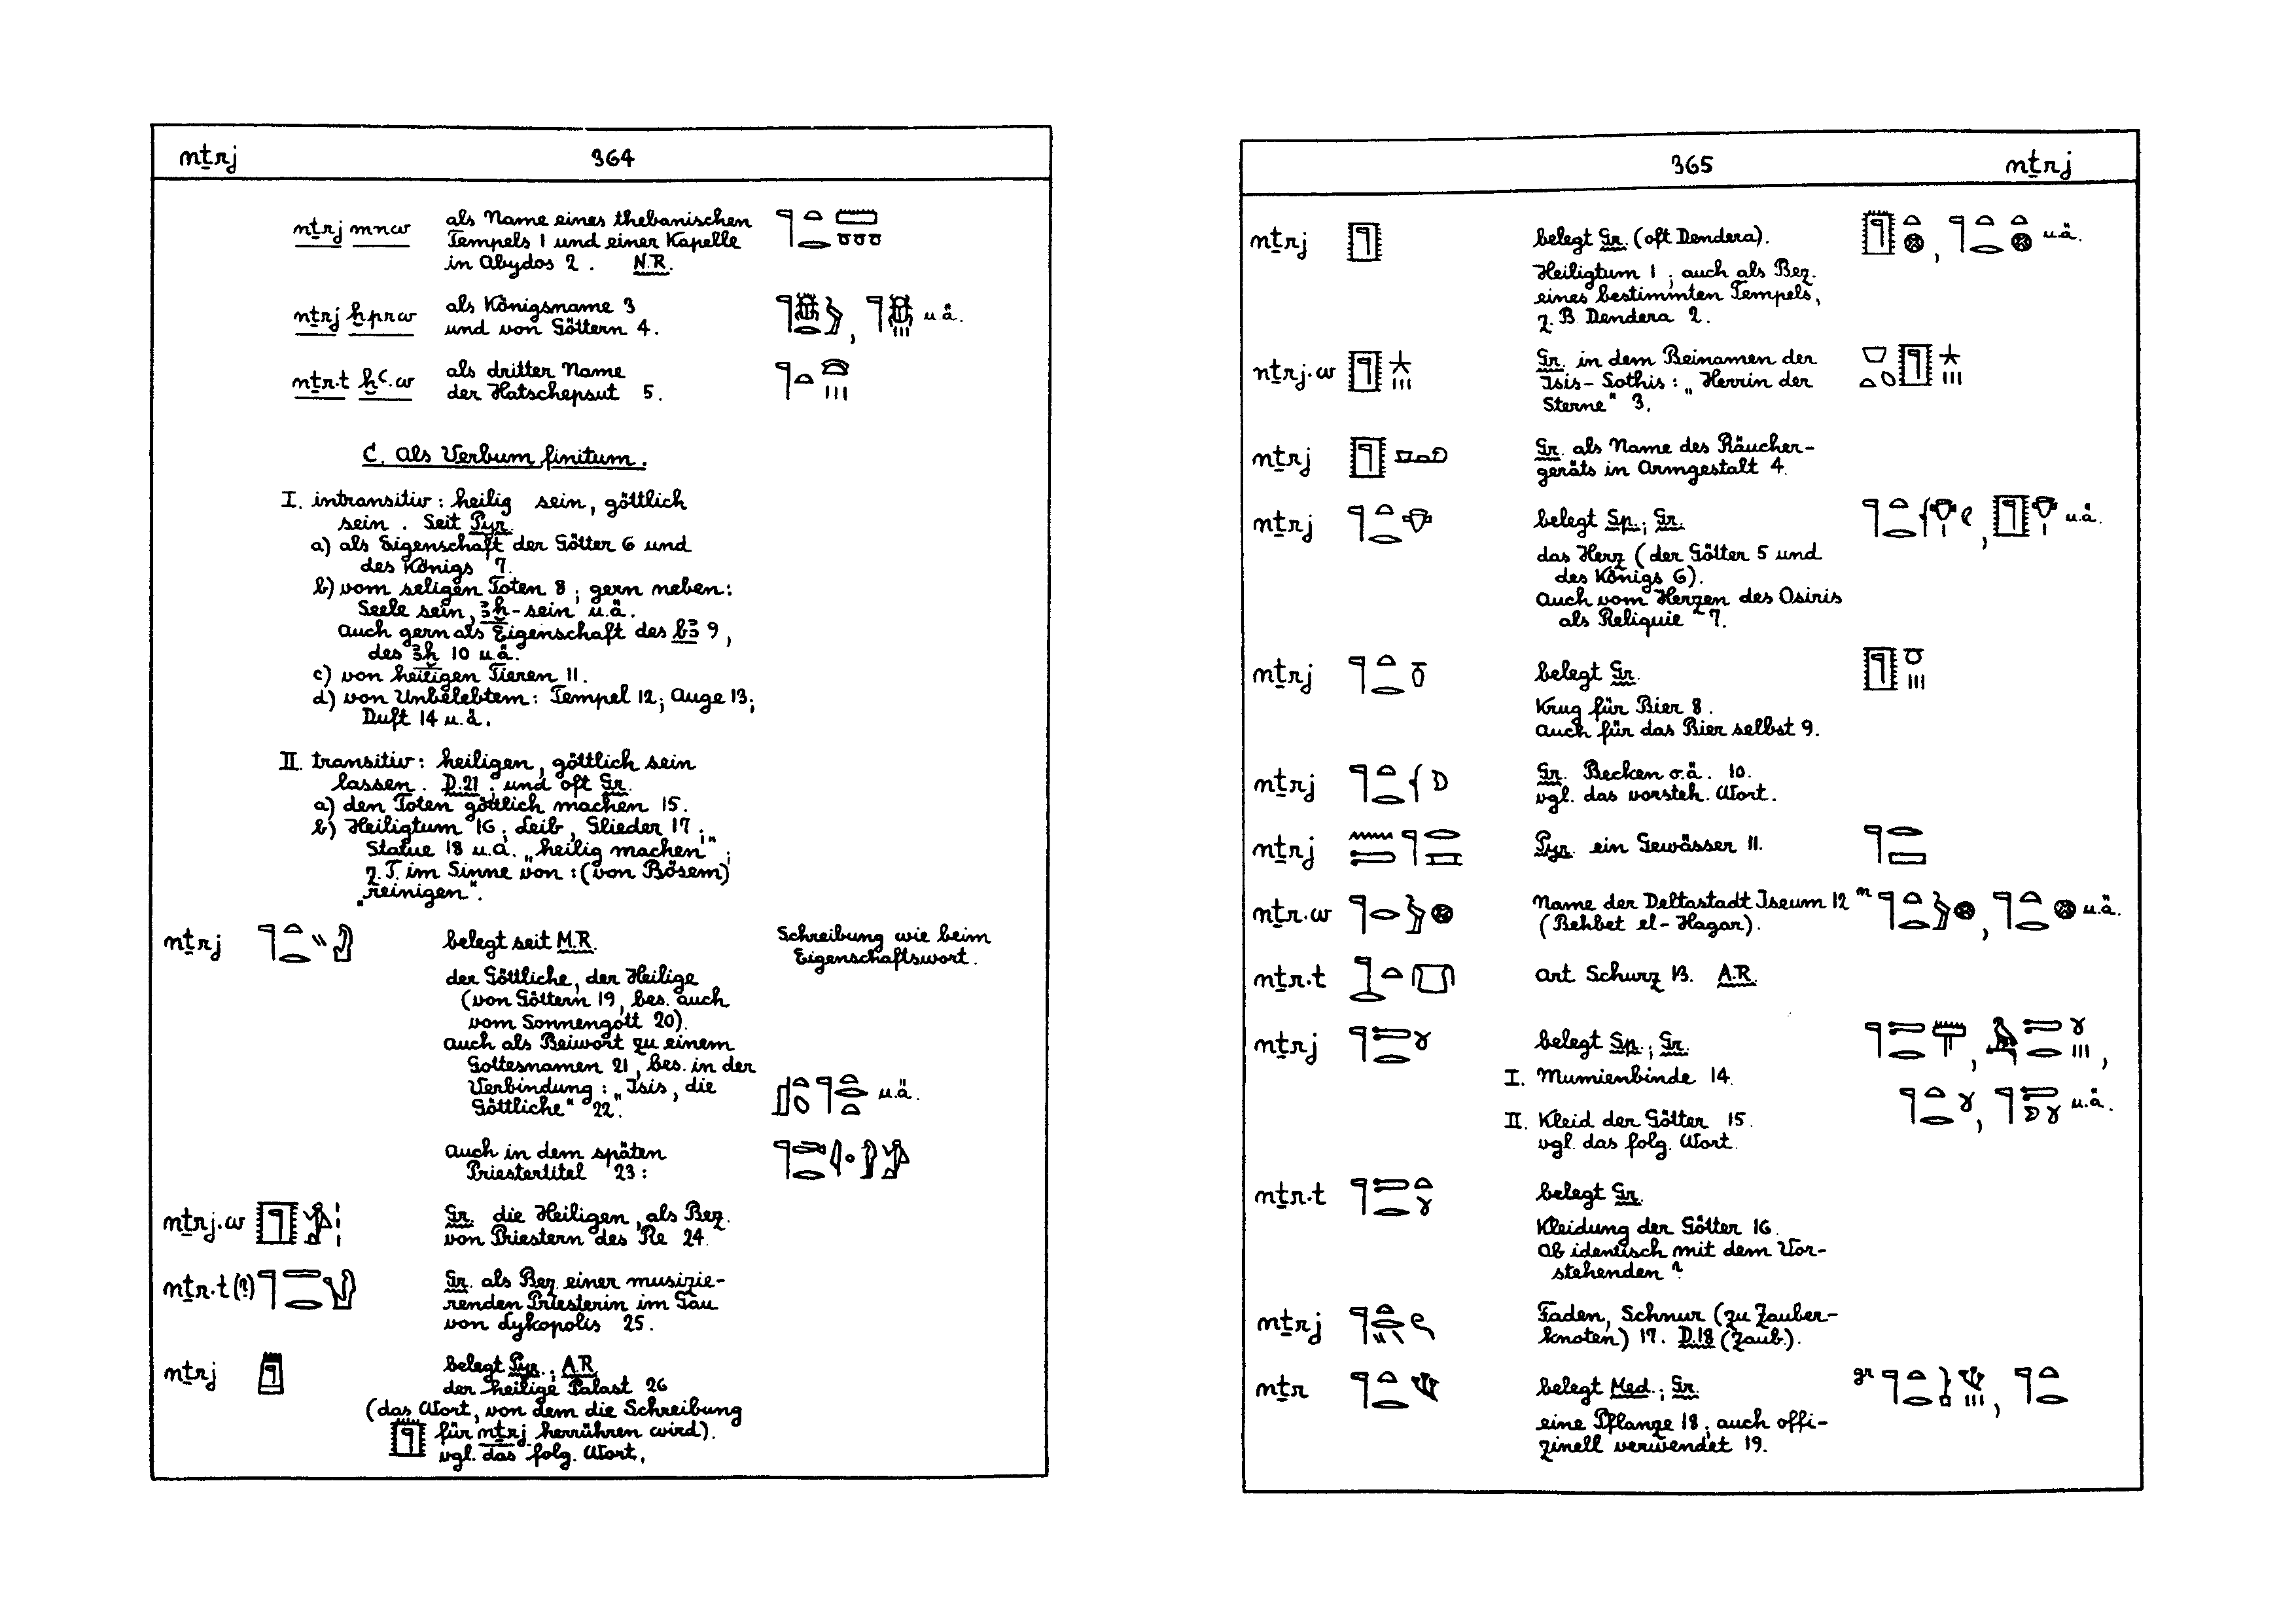 nṯrj 364
nṯrj mnw als Name eines thebanischen
Tempels 1 und einer Kapelle
in Abydos 2. N.R.
nṯrj ḫprw als Königsname 3
und von Göttern 4. u.ä.
nṯr.t ḫꜥ.w als dritter Name
der Hatschepsut 5.
C. Als Verbum finitum.
I. intransitiv: heilig sein, göttlich
sein. Seit Pyr.
a) als Eigenschaft der Götter 6 und
des Königs 7.
b) vom seligen Toten 8; gern neben:
Seele sein, ꜣḫ-sein u.ä.
Auch gern als Eigenschaft des bꜣ 9,
des ꜣḫ 10 u.ä.
c) von heiligen Tieren 11.
d) von Unbelebtem: Tempel 12; Auge 13;
Duft 14 u.ä.
II. transitiv: heiligen, göttlich sein
lassen. D.21; und oft Gr.
a) den Toten göttlich machen 15.
b) Heiligtum 16; Leib, Glieder 17;
Statue 18 u.ä. „heilig machen";
z.T. im Sinne von: (von Bösem)
„reinigen".
nṯrj belegt seit M.R. Schreibung wie beim
Eigenschaftswort.
der Göttliche, der Heilige
(von Göttern 19, bes. auch
vom Sonnengott 20).
Auch als Beiwort zu einem
Gottesnamen 21, bes. in der
Verbindung: „Isis, die
Göttliche" 22. u.ä.
Auch in dem späten
Priestertitel 23:
nṯrj.w Gr. die Heiligen, als Bez.
von Priestern des Re 24.
nṯr.t (?) Gr. als Bez. einer musizie-
renden Priesterin im Gau
von Lykopolis 25.
nṯrj belegt Pyr.; A.R.
der heilige Palast 26
(das Wort, von dem die Schreibung
für nṯrj herrühren wird).
vgl. das folg. Wort.
365 nṯrj
nṯrj belegt Gr. (oft Dendera). , u.ä.
Heiligtum 1; auch als Bez.
eines bestimmten Tempels,
z.B. Dendera 2.
nṯrj.w Gr. in dem Beinamen der
Isis-Sothis: „Herrin der
Sterne" 3.
nṯrj Gr. als Name des Räucher-
geräts in Armgestalt 4.
nṯrj belegt Sp.; Gr. , u.ä.
das Herz (der Götter 5 und
des Königs 6).
Auch vom Herzen des Osiris
als Reliquie 7.
nṯrj belegt Gr.
Krug für Bier 8.
Auch für das Bier selbst 9.
nṯrj Gr. Becken o.ä. 10.
vgl. das vorsteh. Wort.
nṯrj Pyr. ein Gewässer 11.
nṯr.w Name der Deltastadt Iseum 12 m , u.ä.
(Behbet el-Hagar).
nṯr.t Art Schurz 13. A.R.
nṯrj belegt Sp.; Gr.
I. Mumienbinde 14.
II. Kleid der Götter 15. u.ä.
vgl. das folg. Wort.
nṯr.t belegt Gr.
Kleidung der Götter 16.
Ob identisch mit dem Vor-
stehenden?
nṯrj Faden, Schnur (zu Zauber-
knoten) 17. D.18 (Zaub.).
nṯr belegt Med.; Gr. gr
eine Pflanze 18; auch offi-
zinell verwendet 19.